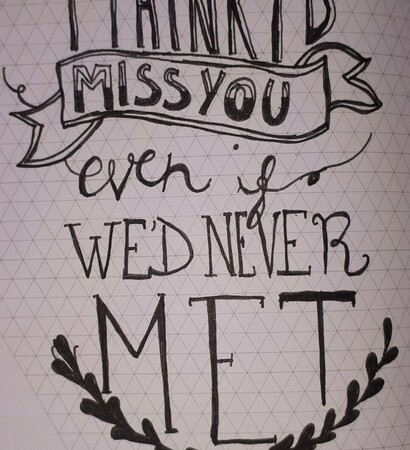 I THINK I'D
MISS YOU
even if
WE'D NEVER
MET